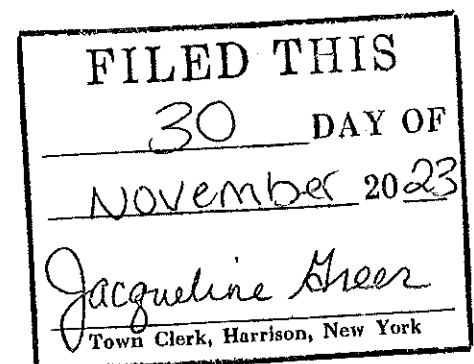 FILED THIS
30 DAY OF
November 2023
Jacqueline Greer
Town Clerk, Harrison, New York